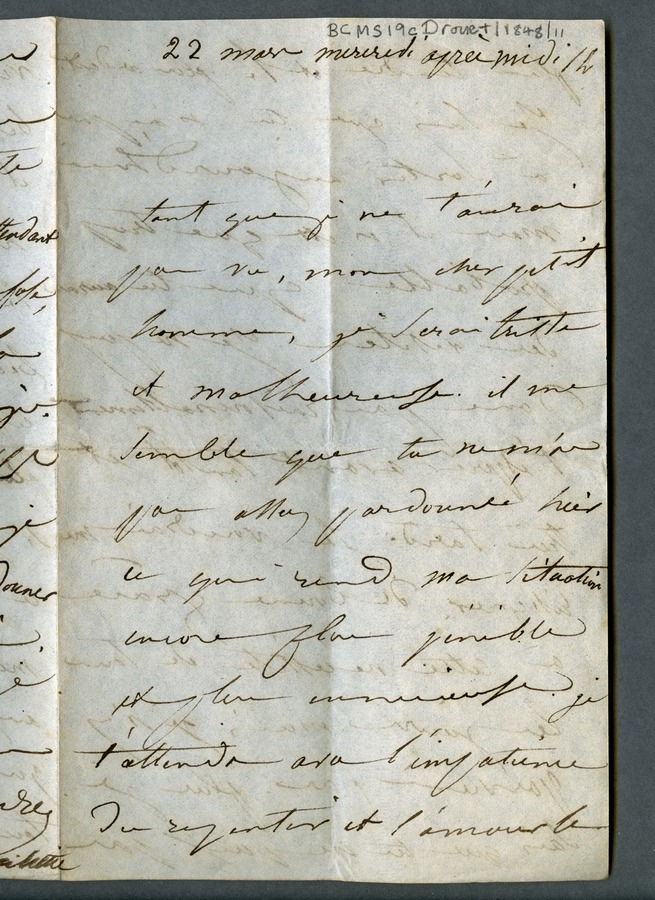 BC MS 19c Drouet/1848/11
22 mars mercredi après midi 1h
tant que je ne t'aurai
pas vu, mon cher petit
homme, je serai triste
et malheureuse. il me
semble que tu ne m'as
pas assez pardonné hier
ce qui rend ma situation
encore plus pénible
et plus ennuieuse. je
t'attends avec l'impatience
du repentir et l'amour le